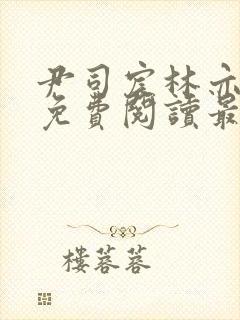 尹司宸林亦
免費閱讀最
樓蓉蓉